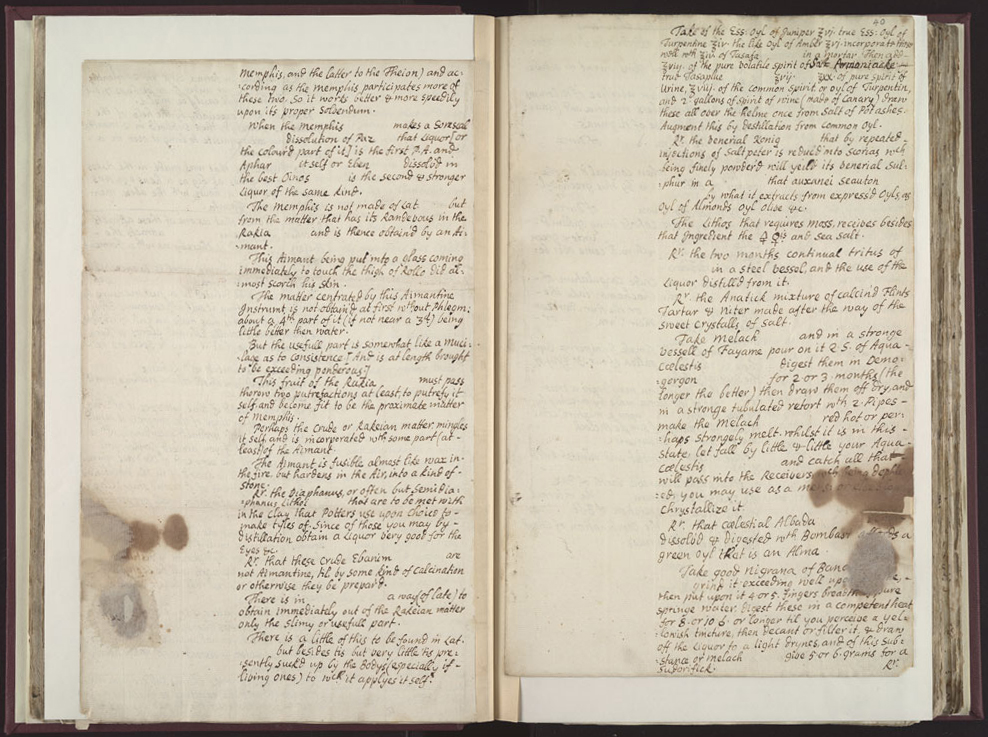 Memphis, and the latter to the Theion) and ac-
cording as the memphis participates more of
these two, so it works better & more speedily
upon its proper Solvendum.
When the Memphis makes a
dissolution of Paz that Liquor [or
the colour'd part of it] is the first P.A. and
Aphar itself or Eben dissolv'd in
the best Oinos is the second & stronger
Liquor of the same kind.
The Memphis is not made of Lat but
from the matter that has its Randevous in the
Rakia and is thence obtain'd by an Ai-
mant.
This Aimant being put into a Glass coming
immediately to touch the thigh of Rollo did al-
most scorch his skin.
The matter centrated by this Aimantine
Instrumt is not obtain'd at first without Phlegm;
about a 4th part of it (if not near a 3d) being
little better then water.
But the usefull part is somewhat like a muci-
lage as to consistence [And is at length brought
to be exceeding ponderous]
This fruit of the Rakia must pass
thorow two putrefactions at least, to putrefy it
self, and become fit to be the proximate matter
of Memphis.
Perhaps the Crude or Rakeian matter mingles
it self and is incorporated with some part (at
least) of the Aimant.
The Aimant is fusible almost like wax in
the fire, but hardens in the Air, into a kind of
stone.
Rx. the Diaphanus, or often but Semidia-
phanus Lithoi that are to be met with
in the Clay that Potters use upon choice to
make tyles of. Since of those you may by
distillation obtain a Liquor very good for the
Eyes &c.
Rx. that these Crude Ebanim are
not Aimantine, til by some kind of Calcination
or otherwise they be prepar'd.
There is in a way (of late) to
obtain immediately out of the Rakeian matter
only the slimy or usefull part.
There is a little of this to be found in Lat
but besides tis but very little tis pre-
sently suck'd up by the Bodys (especially if
living ones) to wch it applyes it self.
40
Take of the Ess: Oyl of Juniper ℥vj. true Ess: Oyl of
Turpentine ℥iv. the like Oyl of Amber ℥vj. incorporate these
well wth ℥iv of Tasafa in a mortar. Then add
℥viij. of the pure volatile spirit of
true Tasaplue ℥vij. ℥x. of pure spirit of
Urine, ℥viij. of the common spirit or oyl of Turpentin,
and 2 gallons of spirit of wine (made of Canary) draw
these all over the helme once from Salt of Potashes.
Augment this by destillation from common Oyl.
Rx. the Venerial Konig that by repeated
injections of Saltpeter is reduc'd into Scorias wch
being finely powder'd will yeild its Venerial Sul-
phur in a that auxanei seauton
by what it extracts from express'd Oyls, as
Oyl of Almonds Oyl Olive &c.
The Lithos that requires moss, receives besides
that Ingredient the and Sea salt.
Rx. the two months continual tritus of
in a steel vessel, and the use of the
Liquor distill'd from it.
Rx. the Anatick mixture of calcin'd Flints
Tartar & Niter made after the way of the
sweet Crystalls of salt.
Take Melach and in a stronge
vessell of Fayame pour on it 2.5. of Aqua
Cœlestis digest them in Demo-
gorgon for 2 or 3 months (the
longer the better) then draw them off dry, and
in a stronge tubulated retort wth 2 Pipes
make the Melach red hot or per-
haps strongly melt. whilst it is in this
state let fall by little & little your Aqua
Cœlestis and catch all that
will pass into the Receivers
you may use as a
Chrystallize it.
Rx. that Cœlestial Albada
dissolv'd & digested wth Bombast affords a
green oyl that is an Alma.
Take good Nigrana of
grind it exceeding well
then put upon it 4 or 5 fingers breadth pure
springe water. digest these in a competent heat
for 8. or 10 d. or longer til you perceive a yel-
lowish tincture, then decant or filter it, & draw
off the Liquor to a light drynes, and of this Sub-
stance or melach give 5 or 6 grams for a
Sudorifick.
Rx.